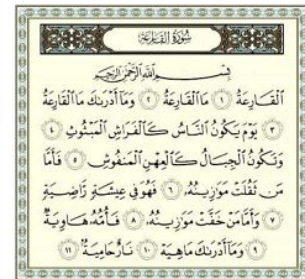 سُورَةُ القَارِعَةِ
بِسْمِ اللَّهِ الرَّحْمَٰنِ الرَّحِيمِ
الْقَارِعَةُ ١ مَا الْقَارِعَةُ ٢ وَمَا أَدْرَىٰكَ مَا الْقَارِعَةُ
٣ يَوْمَ يَكُونُ النَّاسُ كَالْفَرَاشِ الْمَبْثُوثِ ٤
وَتَكُونُ الْجِبَالُ كَالْعِهْنِ الْمَنفُوشِ ٥ فَأَمَّا
مَن ثَقُلَتْ مَوَٰزِينُهُۥ ٦ فَهُوَ فِي عِيشَةٍ رَّاضِيَةٍ
٧ وَأَمَّا مَنْ خَفَّتْ مَوَٰزِينُهُۥ ٨ فَأُمُّهُۥ هَاوِيَةٌ
٩ وَمَا أَدْرَىٰكَ مَا هِيَهْ ١٠ نَارٌ حَامِيَةٌ ١١